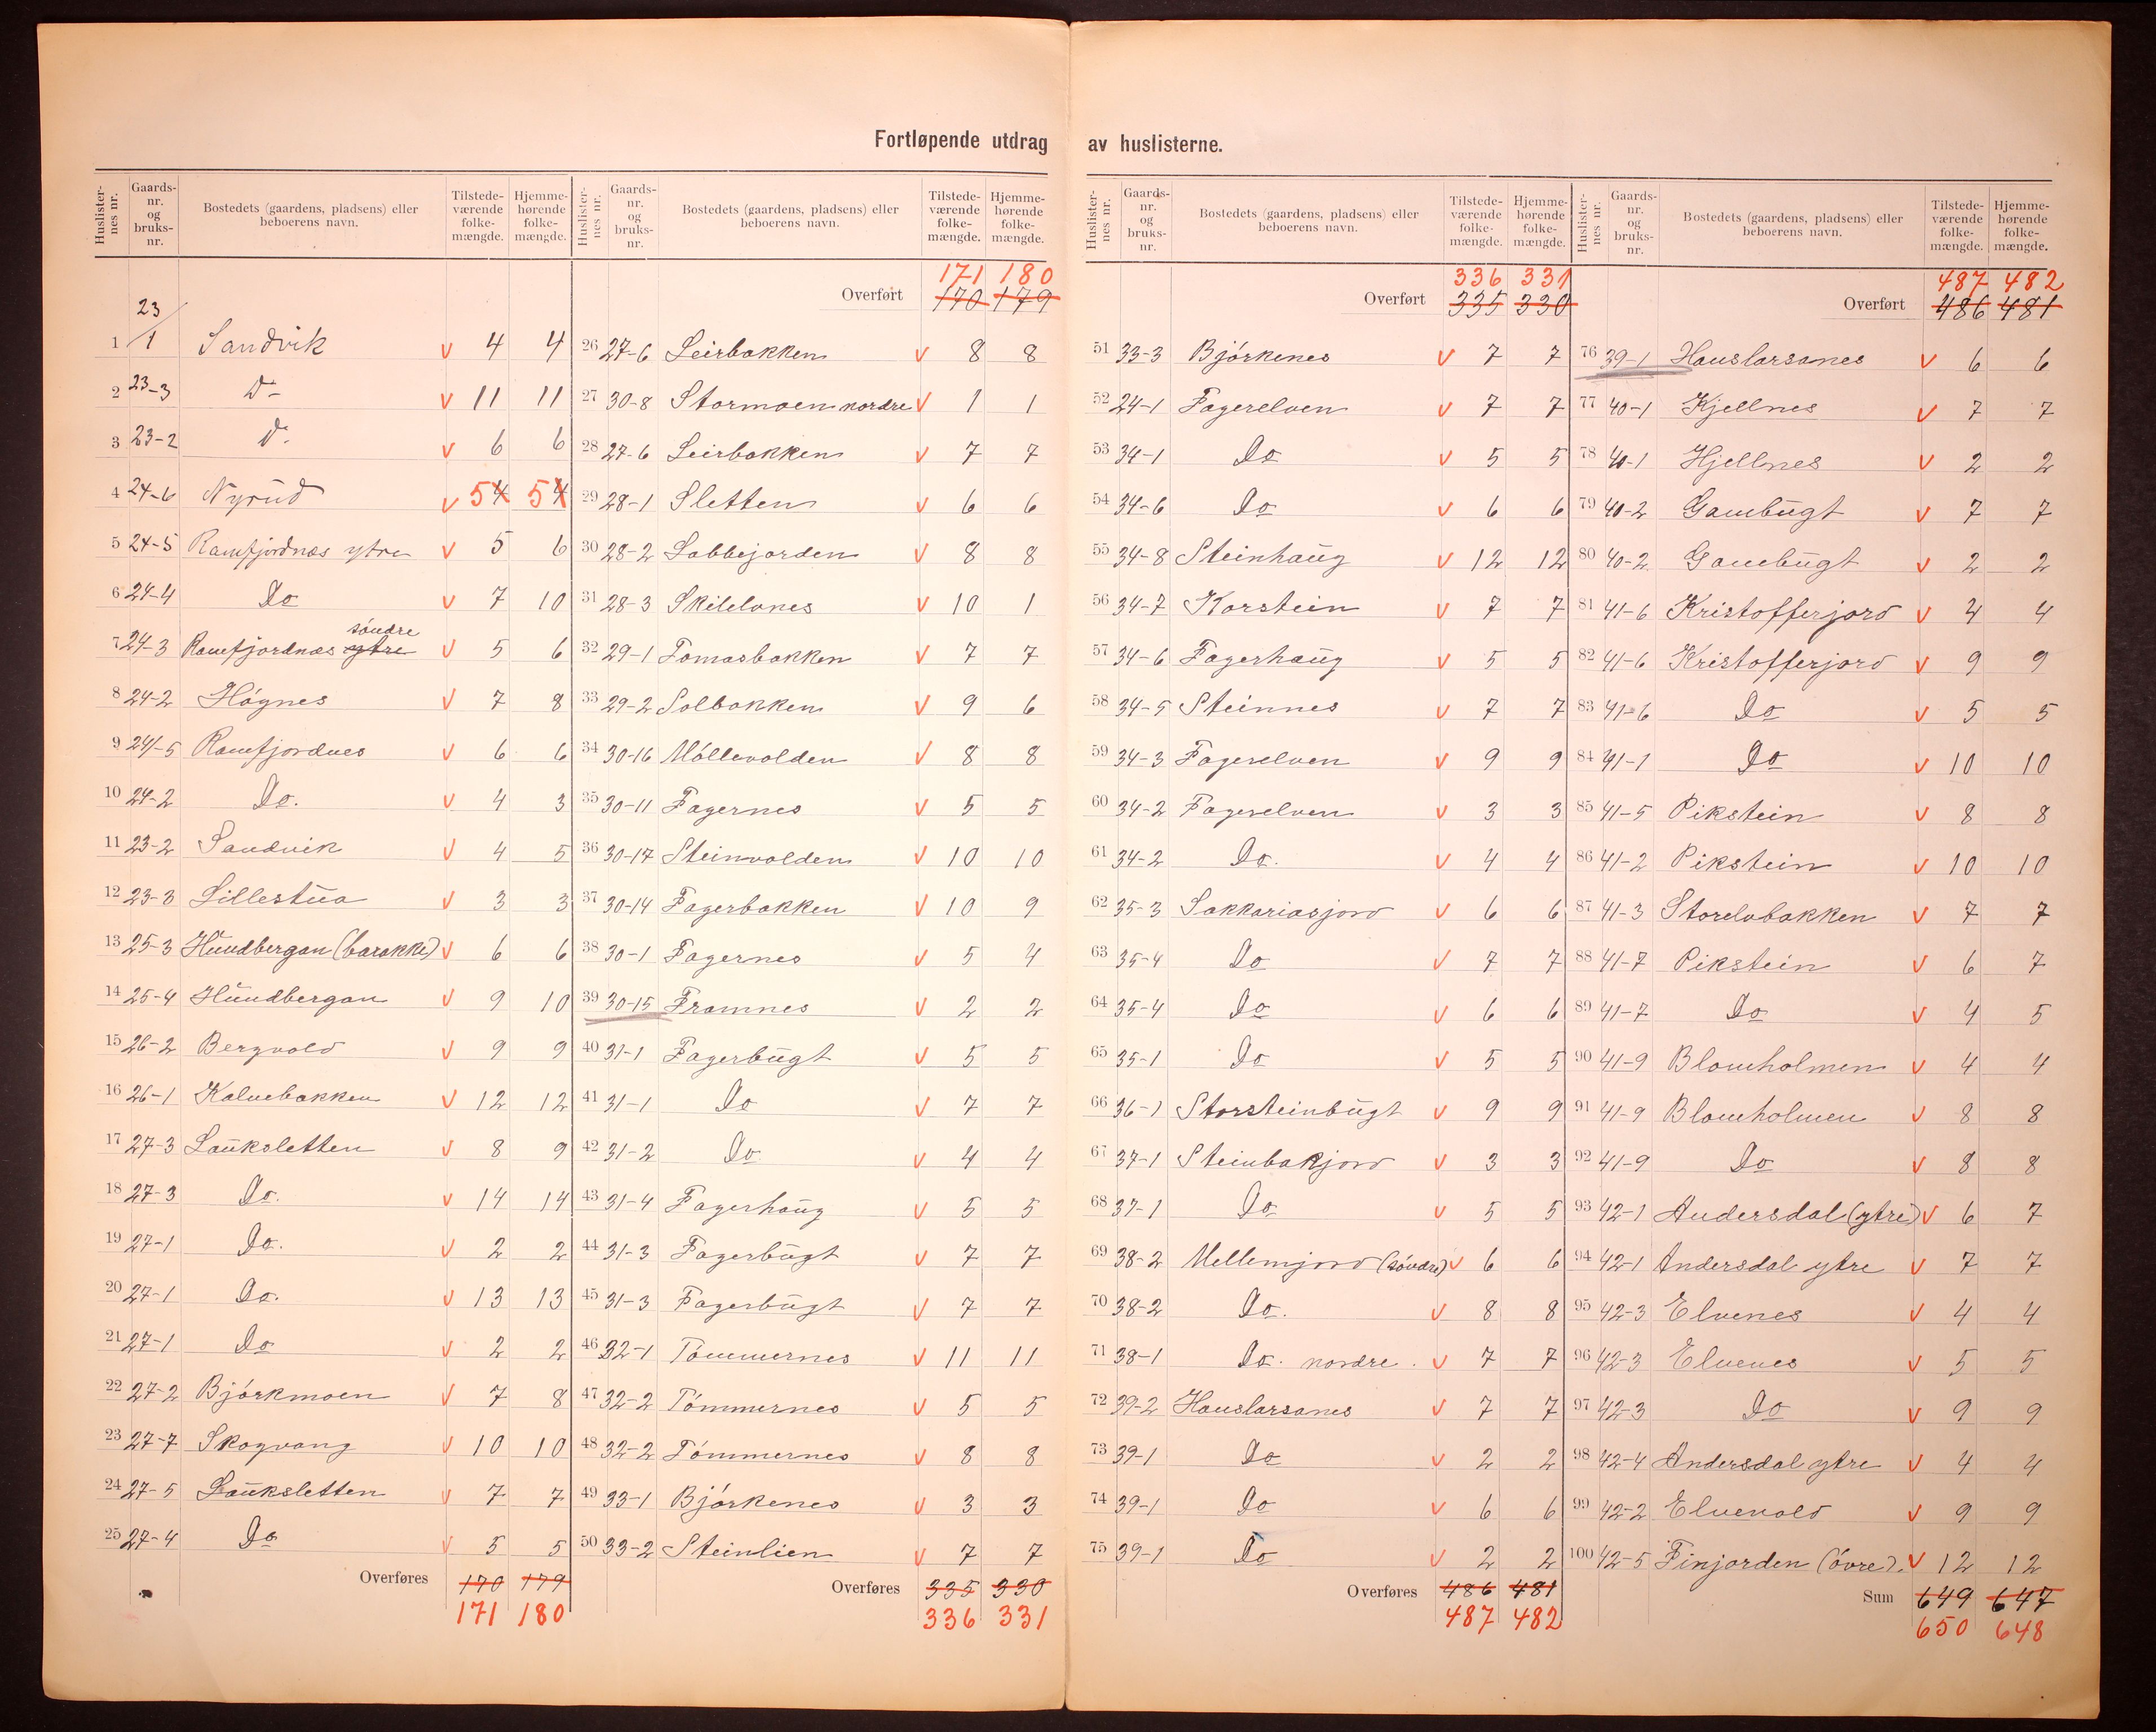 Fortløpende utdrag av huslisterne.
Huslister-nes nr. Gaards-nr. og bruks-nr. Bostedets (gaardens, pladsens) eller beboerens navn. Tilstede-værende folke-mængde. Hjemme-hørende folke-mængde.
1 23/1 Sandvik v 4 4
2 23-3 Do v 11 11
3 23-2 Do v 6 6
4 24-6 Nyrud v 54 54
5 24-5 Ramfjordnæs ytre v 5 6
6 24-4 Do v 7 10
7 24-3 Ramfjordnæs ytre søndre v 5 6
8 24-2 Høgnes v 7 8
9 24-5 Ramfjordnes v 6 6
10 24-2 Do. v 4 3
11 23-2 Sandvik v 4 5
12 23-3 Lillestua v 3 3
13 25-3 Hundbergan (barakke) v 6 6
14 25-4 Hundbergan v 9 10
15 26-2 Bergvold v 9 9
16 26-1 Kalvebakken v 12 12
17 27-3 Lauksletten v 8 9
18 27-3 Do. v 14 14
19 27-1 Do. v 2 2
20 27-1 Do. v 13 13
21 27-1 Do v 2 2
22 27-2 Bjørkmoen v 7 8
23 27-7 Skogvang v 10 10
24 27-5 Lauksletten v 7 7
25 27-4 Do v 5 5
Overføres 170 179
171 180
Huslister-nes nr. Gaards-nr. og bruks-nr. Bostedets (gaardens, pladsens) eller beboerens navn. Tilstede-værende folke-mængde. Hjemme-hørende folke-mængde.
171 180
Overført 170 179
26 27-6 Leirbakken v 8 8
27 30-8 Stormoen nordre v 1 1
28 27-6 Leirbakken v 7 7
29 28-1 Sletten v 6 6
30 28-2 Labbejorden v 8 8
31 28-3 Skilelvnes v 10 1
32 29-1 Tomasbakken v 7 7
33 29-2 Solbakken v 9 6
34 30-16 Møllevolden v 8 8
35 30-11 Fagernes v 5 5
36 30-17 Steinvolden v 10 10
37 30-14 Fagerbakken v 10 9
38 30-1 Fagernes v 5 4
39 30-15 Framnes v 2 2
40 31-1 Fagerbugt v 5 5
41 31-1 Do v 7 7
42 31-2 Do v 4 4
43 31-4 Fagerhaug v 5 5
44 31-3 Fagerbugt v 7 7
45 31-3 Fagerbugt v 7 7
46 32-1 Tømmernes v 11 11
47 32-2 Tømmernes v 5 5
48 32-2 Tømmernes v 8 8
49 33-1 Bjørkenes v 3 3
50 33-2 Steinlien v 7 7
Overføres 335 330
336 331
Huslister-nes nr. Gaards-nr. og bruks-nr. Bostedets (gaardens, pladsens) eller beboerens navn. Tilstede-værende folke-mængde. Hjemme-hørende folke-mængde.
336 331
Overført 335 330
51 33-3 Bjørkenes v 7 7
52 24-1 Fagerelven v 7 7
53 34-1 Do v 5 5
54 34-6 Do v 6 6
55 34-8 Steinhaug v 12 12
56 34-7 Korstein v 7 7
57 34-6 Fagerhaug v 5 5
58 34-5 Steinnes v 7 7
59 34-3 Fagerelven v 9 9
60 34-2 Fagerelven v 3 3
61 34-2 Do. v 4 4
62 35-3 Sakkariasjord v 6 6
63 35-4 Do v 7 7
64 35-4 Do v 6 6
65 35-1 Do v 5 5
66 36-1 Storsteinbugt v 9 9
67 37-1 Steinbakjord v 3 3
68 37-1 Do v 5 5
69 38-2 Mellemjord (søndre) v 6 6
70 38-2 Do. v 8 8
71 38-1 Do. nordre. v 7 7
72 39-2 Hauslarsanes v 7 7
73 39-1 Do v 2 2
74 39-1 Do v 6 6
75 39-1 Do v 2 2
Overføres 486 481
487 482
Huslister-nes nr. Gaards-nr. og bruks-nr. Bostedets (gaardens, pladsens) eller beboerens navn. Tilstede-værende folke-mængde. Hjemme-hørende folke-mængde.
487 482
Overført 486 481
76 39-1 Hauslarsanes v 6 6
77 40-1 Kjellnes v 7 7
78 40-1 Hjellnes v 2 2
79 40-2 Gambugt v 7 7
80 40-2 Gamebugt v 2 2
81 41-6 Kristofferjord v 4 4
82 41-6 Kristofferjord v 9 9
83 41-6 Do v 5 5
84 41-1 Do v 10 10
85 41-5 Pikstein v 8 8
86 41-2 Pikstein v 10 10
87 41-3 Storelvbakken v 7 7
88 41-7 Pikstein v 6 7
89 41-7 Do v 4 5
90 41-9 Blomholmen v 4 4
91 41-9 Blomholmen v 8 8
92 41-9 Do v 8 8
93 42-1 Andersdal (ytre) v 6 7
94 42-1 Andersdal ytre v 7 7
95 42-3 Elvenes v 4 4
96 42-3 Elvenes v 5 5
97 42-3 Do v 9 9
98 42-4 Andersdal ytre v 4 4
99 42-2 Elvevold v 9 9
100 42-5 Finjorden (øvre). v 12 12
Sum 649 647
650 648